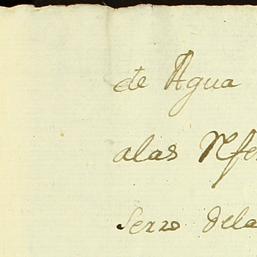 de Agua
alas
Serro dela